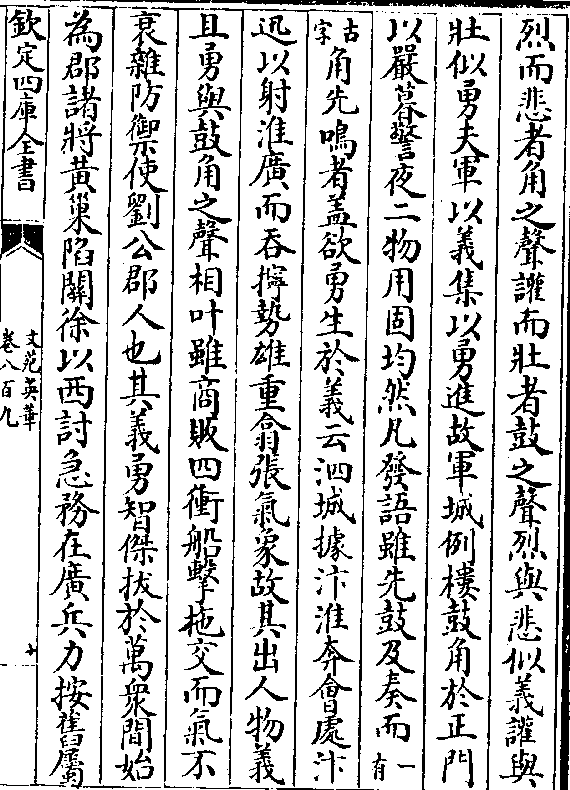 烈而悲者角之聲讙而壯者鼓之聲烈與悲似義讙與
壯似勇夫軍以義集以勇進故軍城例樓鼓角於正門
以嚴暮警夜二物用固均然凡發語雖先鼓及奏而一有
古字角先鳴者盖欲勇生於義云泗城據汴淮奔㑹處汴
迅以射淮廣而吞擰勢雄重翕張氣象故其出人物義
且勇與鼓角之聲相叶雖商販四衝船擊拖交而氣不
衰雜防禦使劉公郡人也其義勇智傑拔於萬衆間始
為郡諸將黄巢陷闗徐以西討急務在廣兵力按舊屬
欽定四庫全書
文苑英華
卷八百九